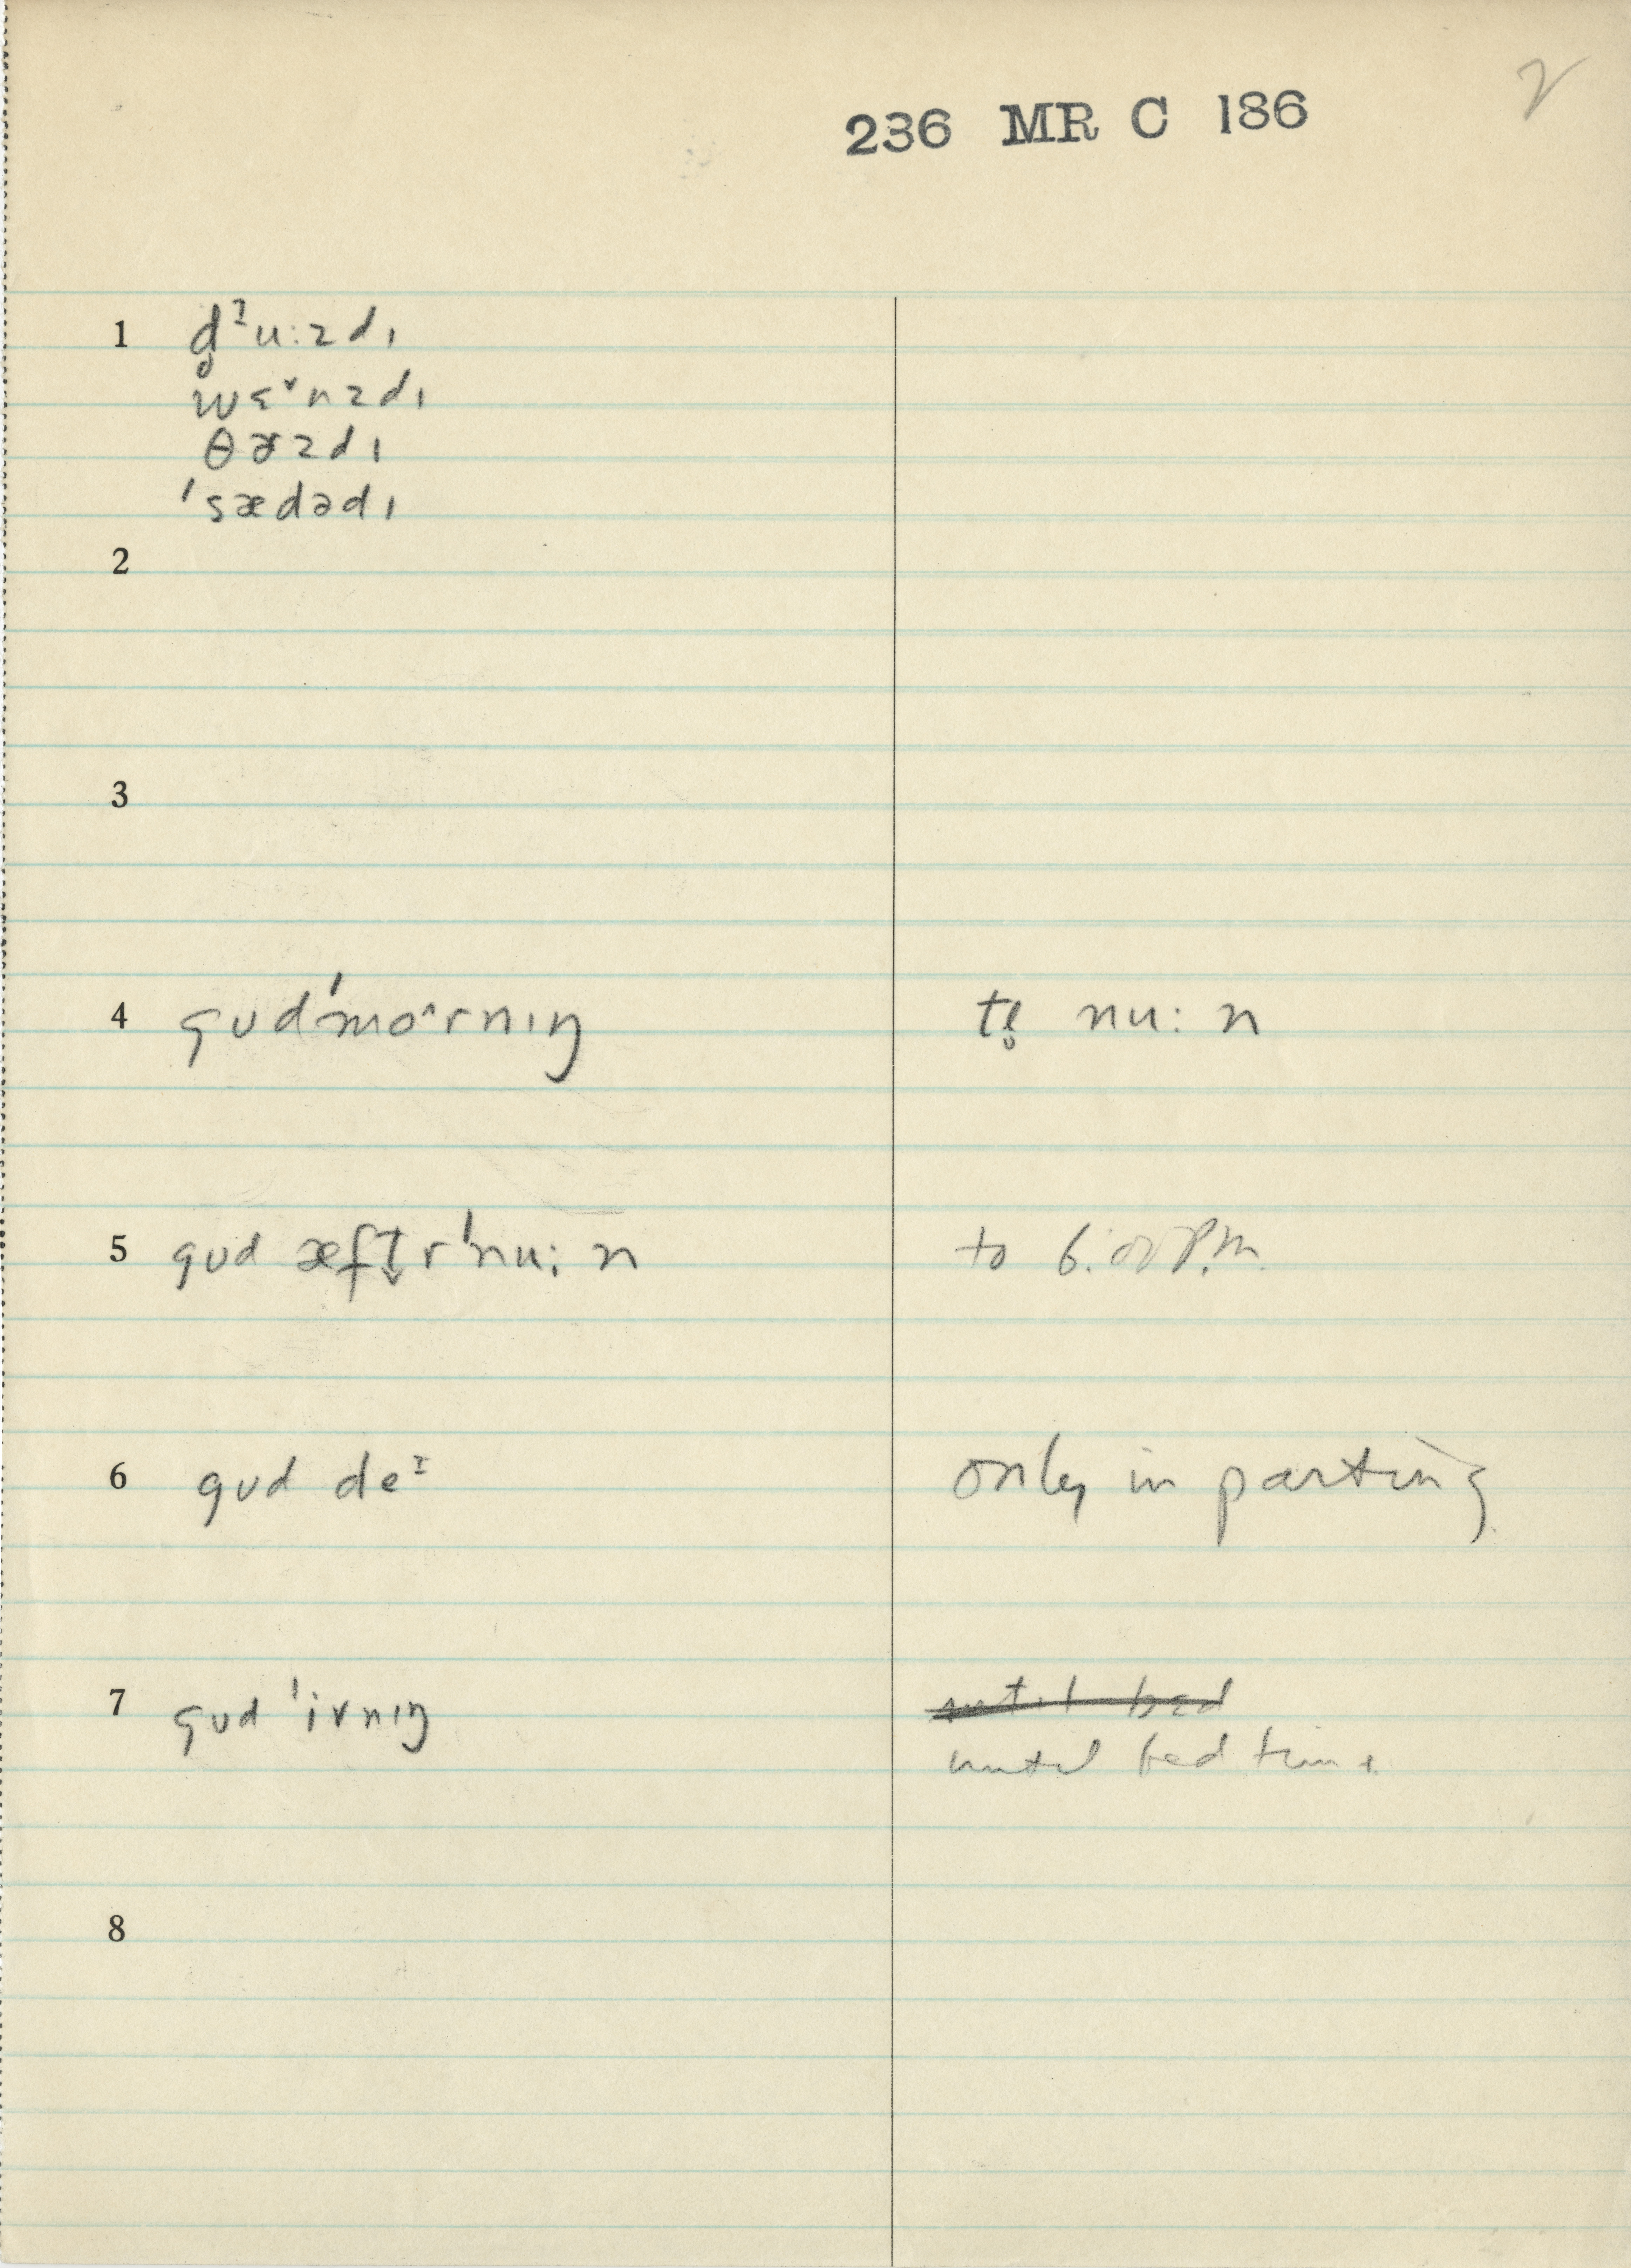 2
236 MR C 186
1 d̥ᶾu:zdɪ
wɛˇnzdɪ
θɚzdɪ
'sædədɪ
2
3
4 gʊd'mo^rnɪŋ nu:n
5 gʊd æft̬r'nu:n to 6:00 P.M.
6 gʊd deᶦ only in parting
7 gʊd 'ivnɪŋ until bed
until bed time
8